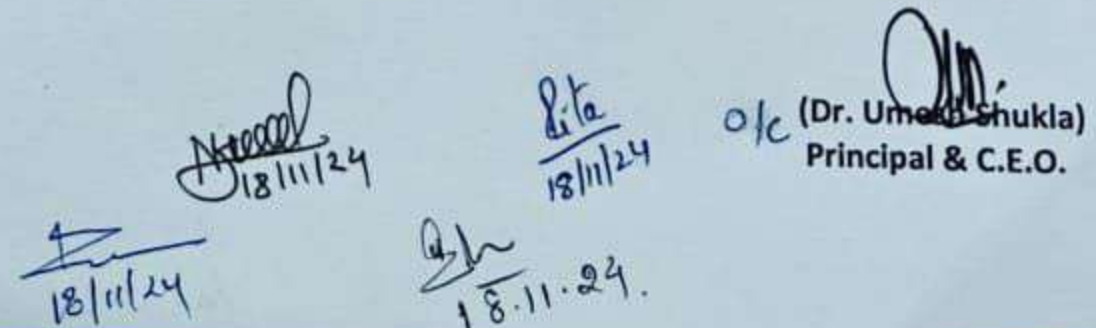 18/11/24
Rita
18/11/24
o/c (Dr. Umesh Shukla)
Principal & C.E.O.
18/11/24
18.11.24.